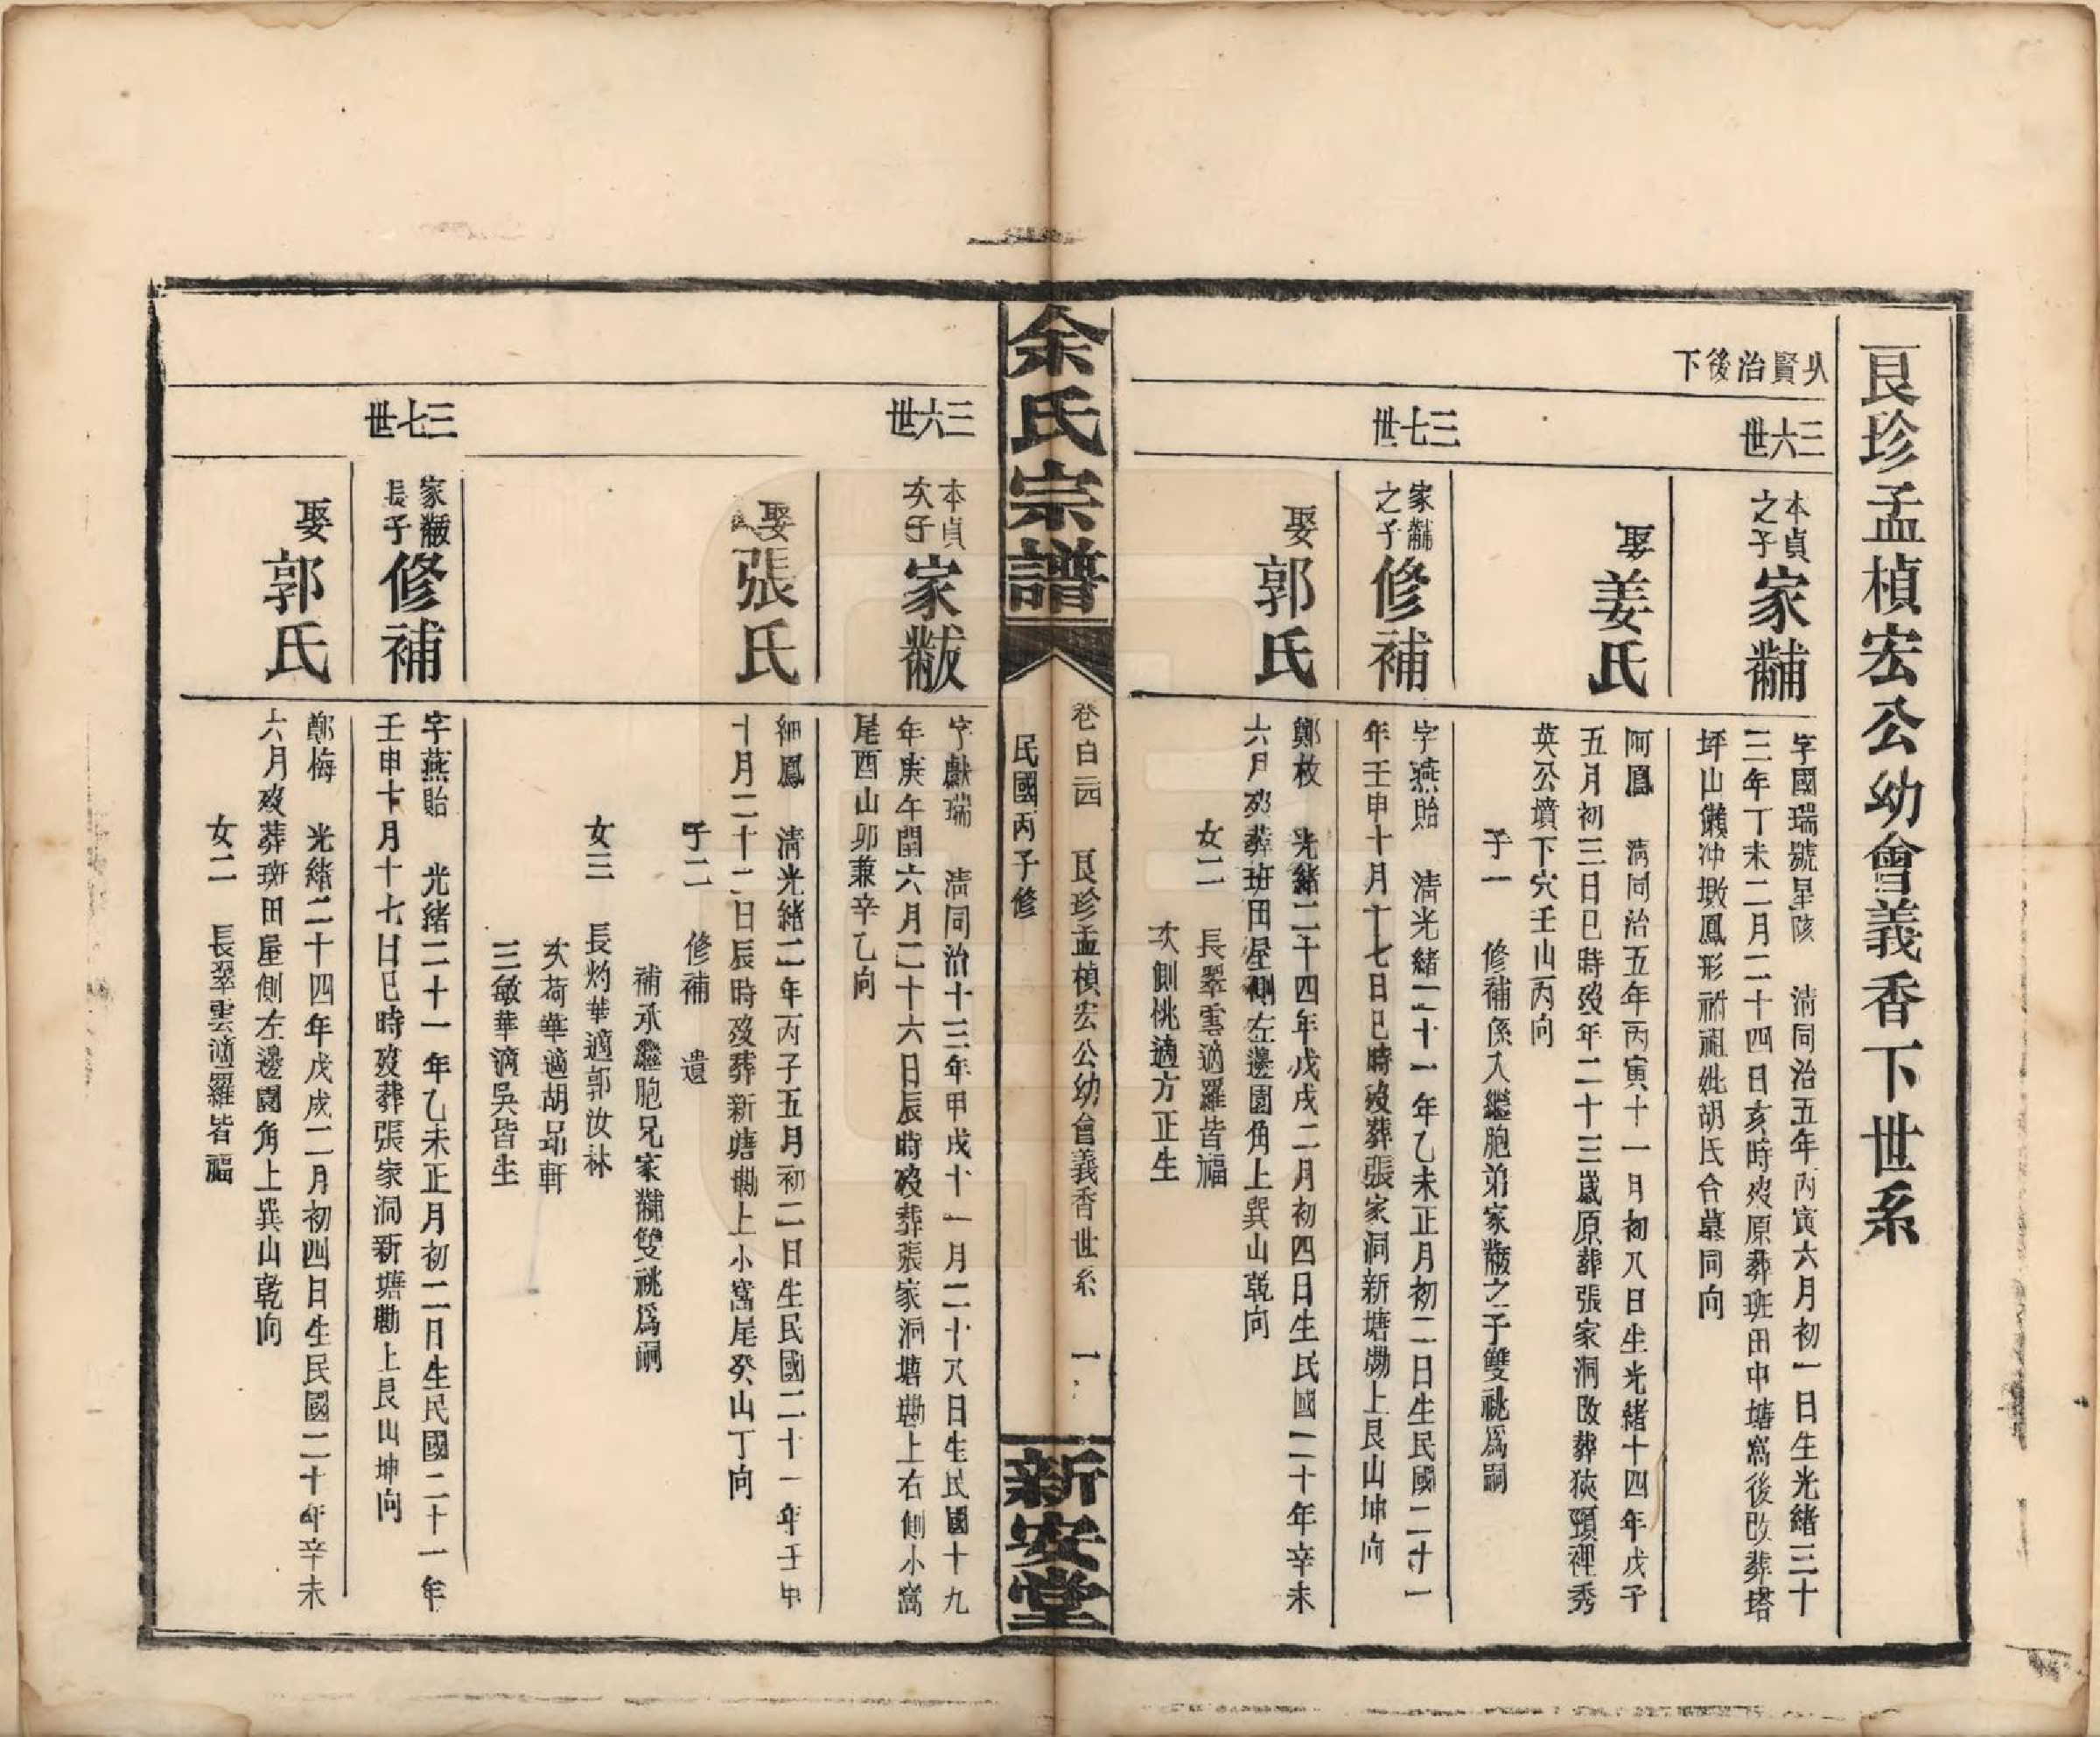 艮珍孟楨宏公幼會義香下世系
乆賢治後下
三六世
本貞之子家黼
字國瑞號星陔 清同治五年丙寅六月初一日生光緒三十
三年丁未二月二十四日亥時歿原葬班田中塘窩後改葬塔
坪山懶冲墩鳳形祔祖妣胡氏合墓同向
娶姜氏
阿鳳 清同治五年丙寅十一月初八日生光緒十四年戊子
五月初三日巳時歿年二十三歲原葬張家洞改葬狹頸裡秀
英公墳下穴壬山丙向
子一 修補係入繼胞弟家黻之子雙祧爲嗣
三七世
家黼之子修補
字燕貽 清光緒二十一年乙未正月初二日生民國二十一
年壬申十月十七日巳時歿葬張家洞新塘墈上艮山坤向
娶郭氏
鄭枚 光緒二十四年戊戌二月初四日生民國二十年辛未
六月歿葬班田屋側左邊園角上巽山乾向
女二 長翠雲適羅皆福
次側桃適方正生
余氏宗譜
卷百四 艮珍孟楨宏公幼會義香世系 一
民國丙子修
新安堂
三六世
本貞次子家黻
字獻瑞 清同治十三年甲戌十一月二十八日生民國十九
年庚午閏六月二十六日辰時歿葬張家洞塘墈上右側小窩
尾酉山卯兼辛乙向
娶張氏
細鳳 清光緒二年丙子五月初二日生民國二十一年壬申
十月二十二日辰時歿葬新塘墈上小窩尾癸山丁向
子二 修補 遺
補承繼胞兄家黼雙祧爲嗣
女三 長灼華適郭汝林
次荷華適胡品軒
三敏華適吳皆生
三七世
家黻長子修補
字燕貽 光緒二十一年乙未正月初二日生民國二十一年
壬申十月十七日巳時歿葬張家洞新塘墈上艮山坤向
娶郭氏
鄭梅 光緒二十四年戊戌二月初四日生民國二十年辛未
六月歿葬班田屋側左邊園角上巽山乾向
女二 長翠雲適羅皆福